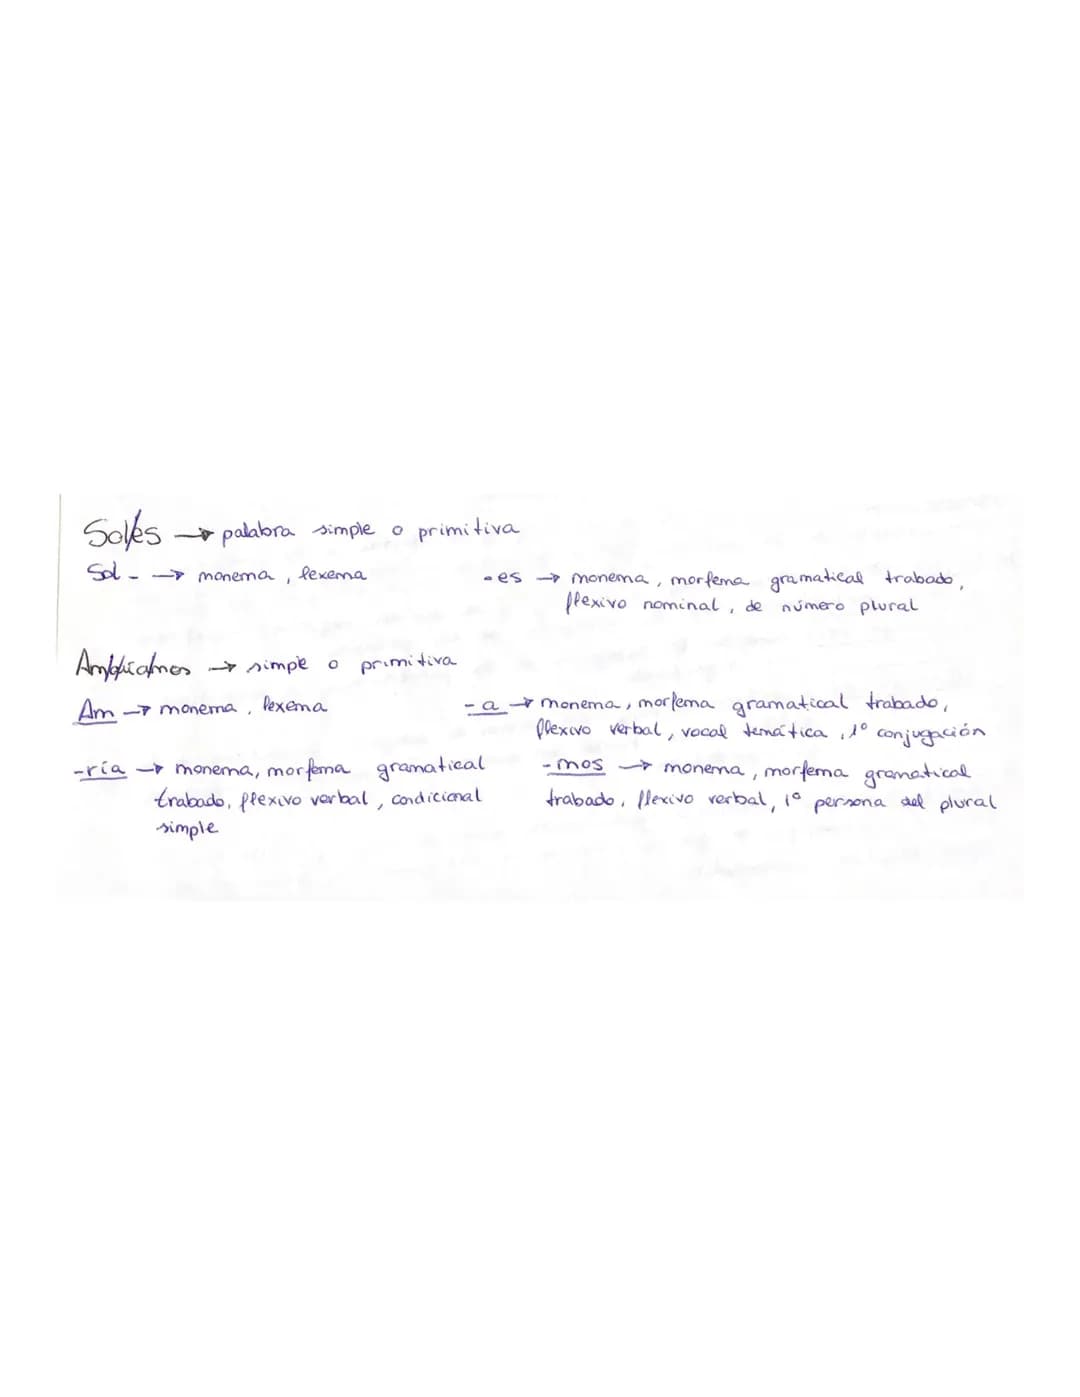 Sol/es → palabra simple o primitiva
Sol - → monema, lexema
-es → monema, morfema gramatical trabado,
flexivo nominal, de número plural
Am/a/ría/mos → simple o primitiva
Am → monema, lexema
-a → monema, morfema gramatical trabado,
flexivo verbal, vocal temática, 1º conjugación
-ría → monema, morfema gramatical
trabado, flexivo verbal, condicional
simple
-mos → monema, morfema gramatical
trabado, flexivo verbal, 1º persona del plural